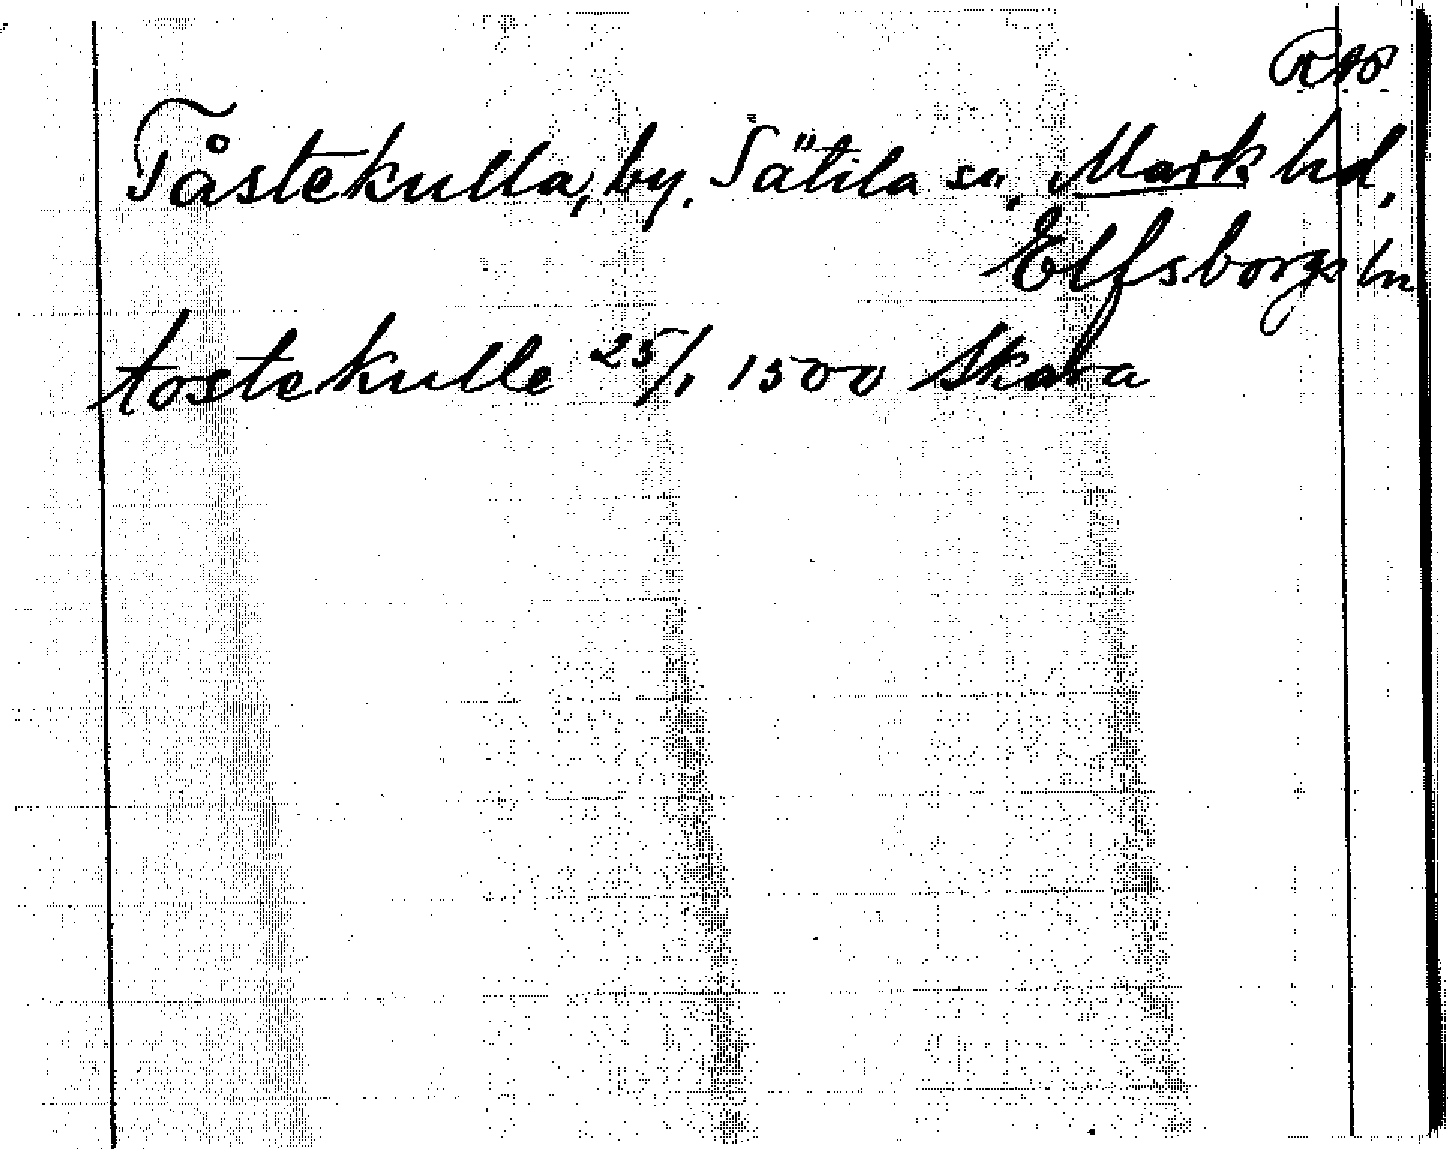 RAP
Tåstekulla, by, Sätila sn, Mark hd,
Elfsborgs ln
tostekulle 25/1 1500 Skara